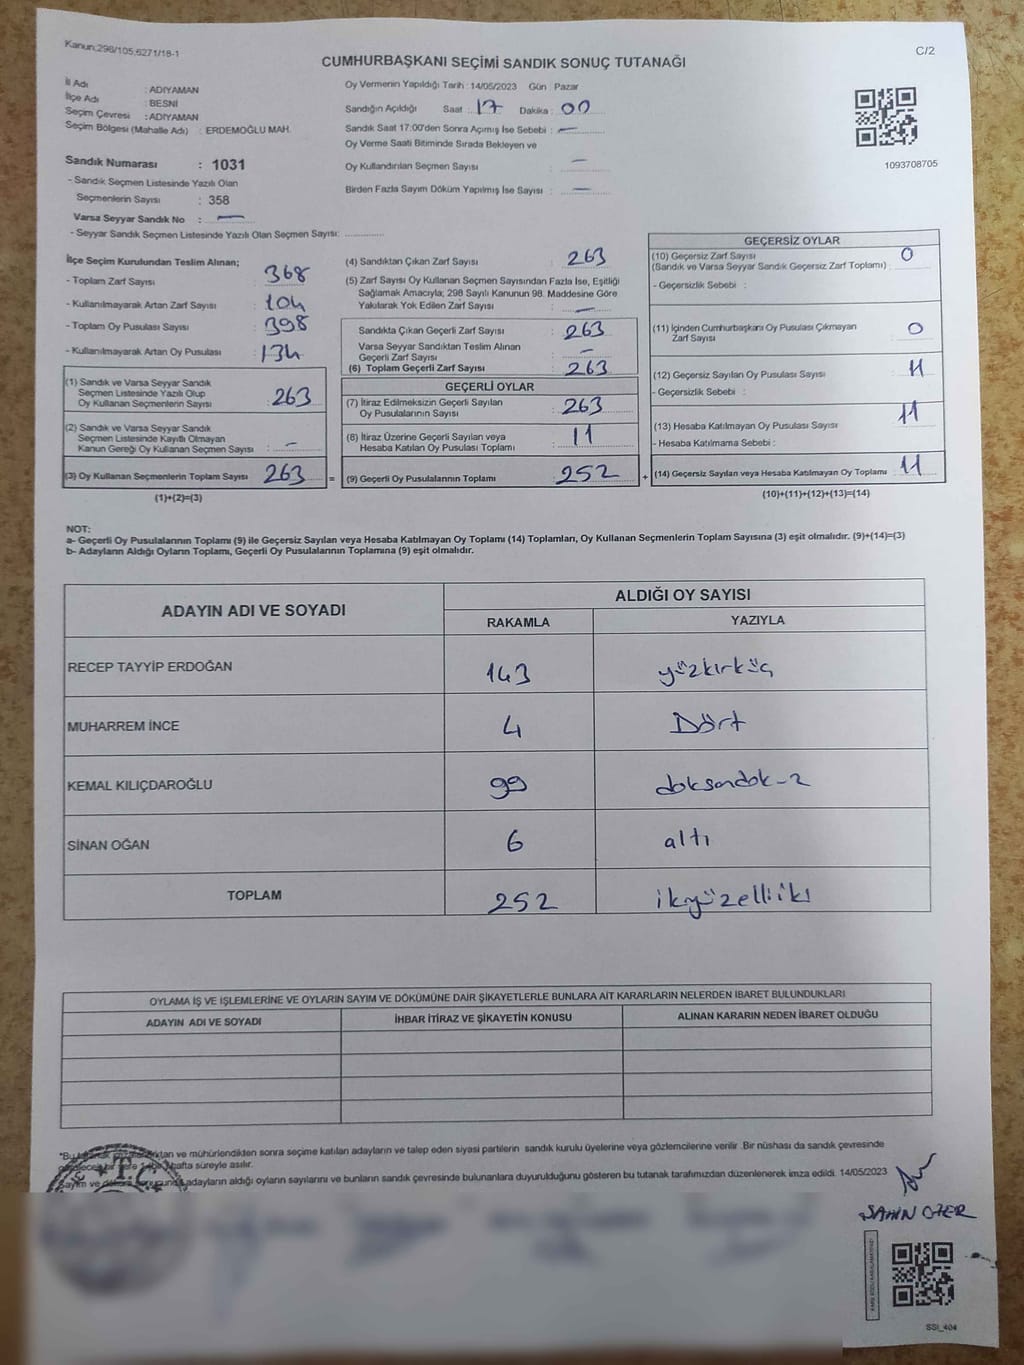 Kanun:298/105,6271/18-1
C/2
CUMHURBAŞKANI SEÇİMİ SANDIK SONUÇ TUTANAĞI
İl Adı : ADIYAMAN
İlçe Adı : BESNİ
Seçim Çevresi : ADIYAMAN
Seçim Bölgesi (Mahalle Adı) : ERDEMOĞLU MAH.
Sandık Numarası : 1031
- Sandık Seçmen Listesinde Yazılı Olan
Seçmenlerin Sayısı : 358
Varsa Seyyar Sandık No : —
- Seyyar Sandık Seçmen Listesinde Yazılı Olan Seçmen Sayısı: ............
Oy Vermenin Yapıldığı Tarih : 14/05/2023 Gün : Pazar
Sandığın Açıldığı Saat : 17 Dakika : 00
Sandık Saat 17:00'den Sonra Açımış İse Sebebi : —
Oy Verme Saati Bitiminde Sırada Bekleyen ve
Oy Kullandırılan Seçmen Sayısı : —
Birden Fazla Sayım Döküm Yapılmış İse Sayısı : —
1093708705
İlçe Seçim Kurulundan Teslim Alınan;
- Toplam Zarf Sayısı : 368
- Kullanılmayarak Artan Zarf Sayısı : 104
- Toplam Oy Pusulası Sayısı : 398
- Kullanılmayarak Artan Oy Pusulası : 134
(1) Sandık ve Varsa Seyyar Sandık
Seçmen Listesinde Yazılı Olup
Oy Kullanan Seçmenlerin Sayısı : 263
(2) Sandık ve Varsa Seyyar Sandık
Seçmen Listesinde Kayıtlı Olmayan
Kanun Gereği Oy Kullanan Seçmen Sayısı : —
(3) Oy Kullanan Seçmenlerin Toplam Sayısı 263 =
(1)+(2)=(3)
(4) Sandıktan Çıkan Zarf Sayısı : 263
(5) Zarf Sayısı Oy Kullanan Seçmen Sayısından Fazla İse, Eşitliği
Sağlamak Amacıyla; 298 Sayılı Kanunun 98. Maddesine Göre
Yakılarak Yok Edilen Zarf Sayısı : —
Sandıkta Çıkan Geçerli Zarf Sayısı : 263
Varsa Seyyar Sandıktan Teslim Alınan
Geçerli Zarf Sayısı : —
(6) Toplam Geçerli Zarf Sayısı : 263
GEÇERLİ OYLAR
(7) İtiraz Edilmeksizin Geçerli Sayılan
Oy Pusulalarının Sayısı : 263
(8) İtiraz Üzerine Geçerli Sayılan veya
Hesaba Katılan Oy Pusulası Toplamı : 11
(9) Geçerli Oy Pusulalarının Toplamı 252 +
GEÇERSİZ OYLAR
(10) Geçersiz Zarf Sayısı
(Sandık ve Varsa Seyyar Sandık Geçersiz Zarf Toplamı) : 0
- Geçersizlik Sebebi :
(11) İçinden Cumhurbaşkanı Oy Pusulası Çıkmayan
Zarf Sayısı : 0
(12) Geçersiz Sayılan Oy Pusulası Sayısı : 11
- Geçersizlik Sebebi :
(13) Hesaba Katılmayan Oy Pusulası Sayısı : 11
- Hesaba Katılmama Sebebi :
(14) Geçersiz Sayılan veya Hesaba Katılmayan Oy Toplamı : 11
(10)+(11)+(12)+(13)=(14)
NOT:
a- Geçerli Oy Pusulalarının Toplamı (9) ile Geçersiz Sayılan veya Hesaba Katılmayan Oy Toplamı (14) Toplamları, Oy Kullanan Seçmenlerin Toplam Sayısına (3) eşit olmalıdır. (9)+(14)=(3)
b- Adayların Aldığı Oyların Toplamı, Geçerli Oy Pusulalarının Toplamına (9) eşit olmalıdır.
ADAYIN ADI VE SOYADI
ALDIĞI OY SAYISI
RAKAMLA YAZIYLA
RECEP TAYYİP ERDOĞAN 143 yüzkırküç
MUHARREM İNCE 4 Dört
KEMAL KILIÇDAROĞLU 99 doksandok-z
SİNAN OĞAN 6 altı
TOPLAM 252 ikiyüzelliiki
OYLAMA İŞ VE İŞLEMLERİNE VE OYLARIN SAYIM VE DÖKÜMÜNE DAİR ŞİKAYETLERLE BUNLARA AİT KARARLARIN NELERDEN İBARET BULUNDUKLARI
ADAYIN ADI VE SOYADI İHBAR İTİRAZ VE ŞİKAYETİN KONUSU ALINAN KARARIN NEDEN İBARET OLDUĞU
ve mühürlendikten sonra seçime katılan adayların ve talep eden siyasi partilerin sandık kurulu üyelerine veya gözlemcilerine verilir .Bir nüshası da sandık çevresinde
hafta süreyle asılır.
Sayım ve adayların aldığı oyların sayılarını ve bunların sandık çevresinde bulunanlara duyurulduğunu gösteren bu tutanak tarafımızdan düzenlenerek imza edildi. 14/05/2023
T.C.
ŞAHİN ÖZER
SSİ_404